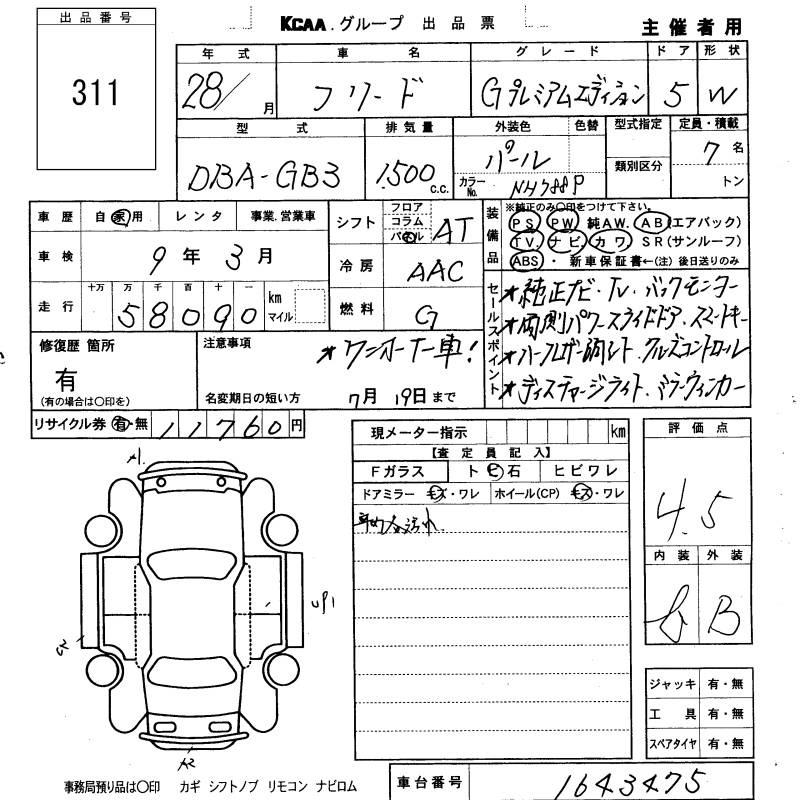 出品番号
311
KCAA.グループ 出品票
主催者用
年式 車名 グレード ドア 形状
28/月 フリード Gプレミアムエディション 5 W
型式 排気量 外装色 色替 型式指定 定員・積載
DBA-GB3 1500 c.c. パール 類別区分 7名
カラーNo. NH788P トン
車歴 自家用 レンタ 事業.営業車
シフト フロア コラム パネル AT
装備品
※純正のみ〇印をつけて下さい。
PS. PW 純AW. AB(エアバック)
TV. ナビ. カワ SR(サンルーフ)
ABS・ 新車保証書←(注)後日送りのみ
車検 9年3月
冷房 AAC
走行 十万 万 千 百 十 一
58090 km マイル
燃料 G
セールスポイント
★純正ナビ・TV.バックモニター
★両側パワースライドドア.スマートキー
★ハーフレザー調シート クルーズコントロール
★ディスチャージライト.ミラーウィンカー
修復歴 箇所
有
(有の場合は〇印を)
注意事項
★ワンオーナー車!
名変期日の短い方 7月19日まで
リサイクル券 有・無 11760円
現メーター指示 km
【査定員記入】
Fガラス トビ石 ヒビワレ
ドアミラー キズ・ワレ ホイール(CP) キズ・ワレ
評価点
4.5
内装 外装
B
A1
UP1
A2
ジャッキ 有・無
工具 有・無
スペアタイヤ 有・無
事務局預り品は〇印 カギ シフトノブ リモコン ナビロム
車台番号 1643475